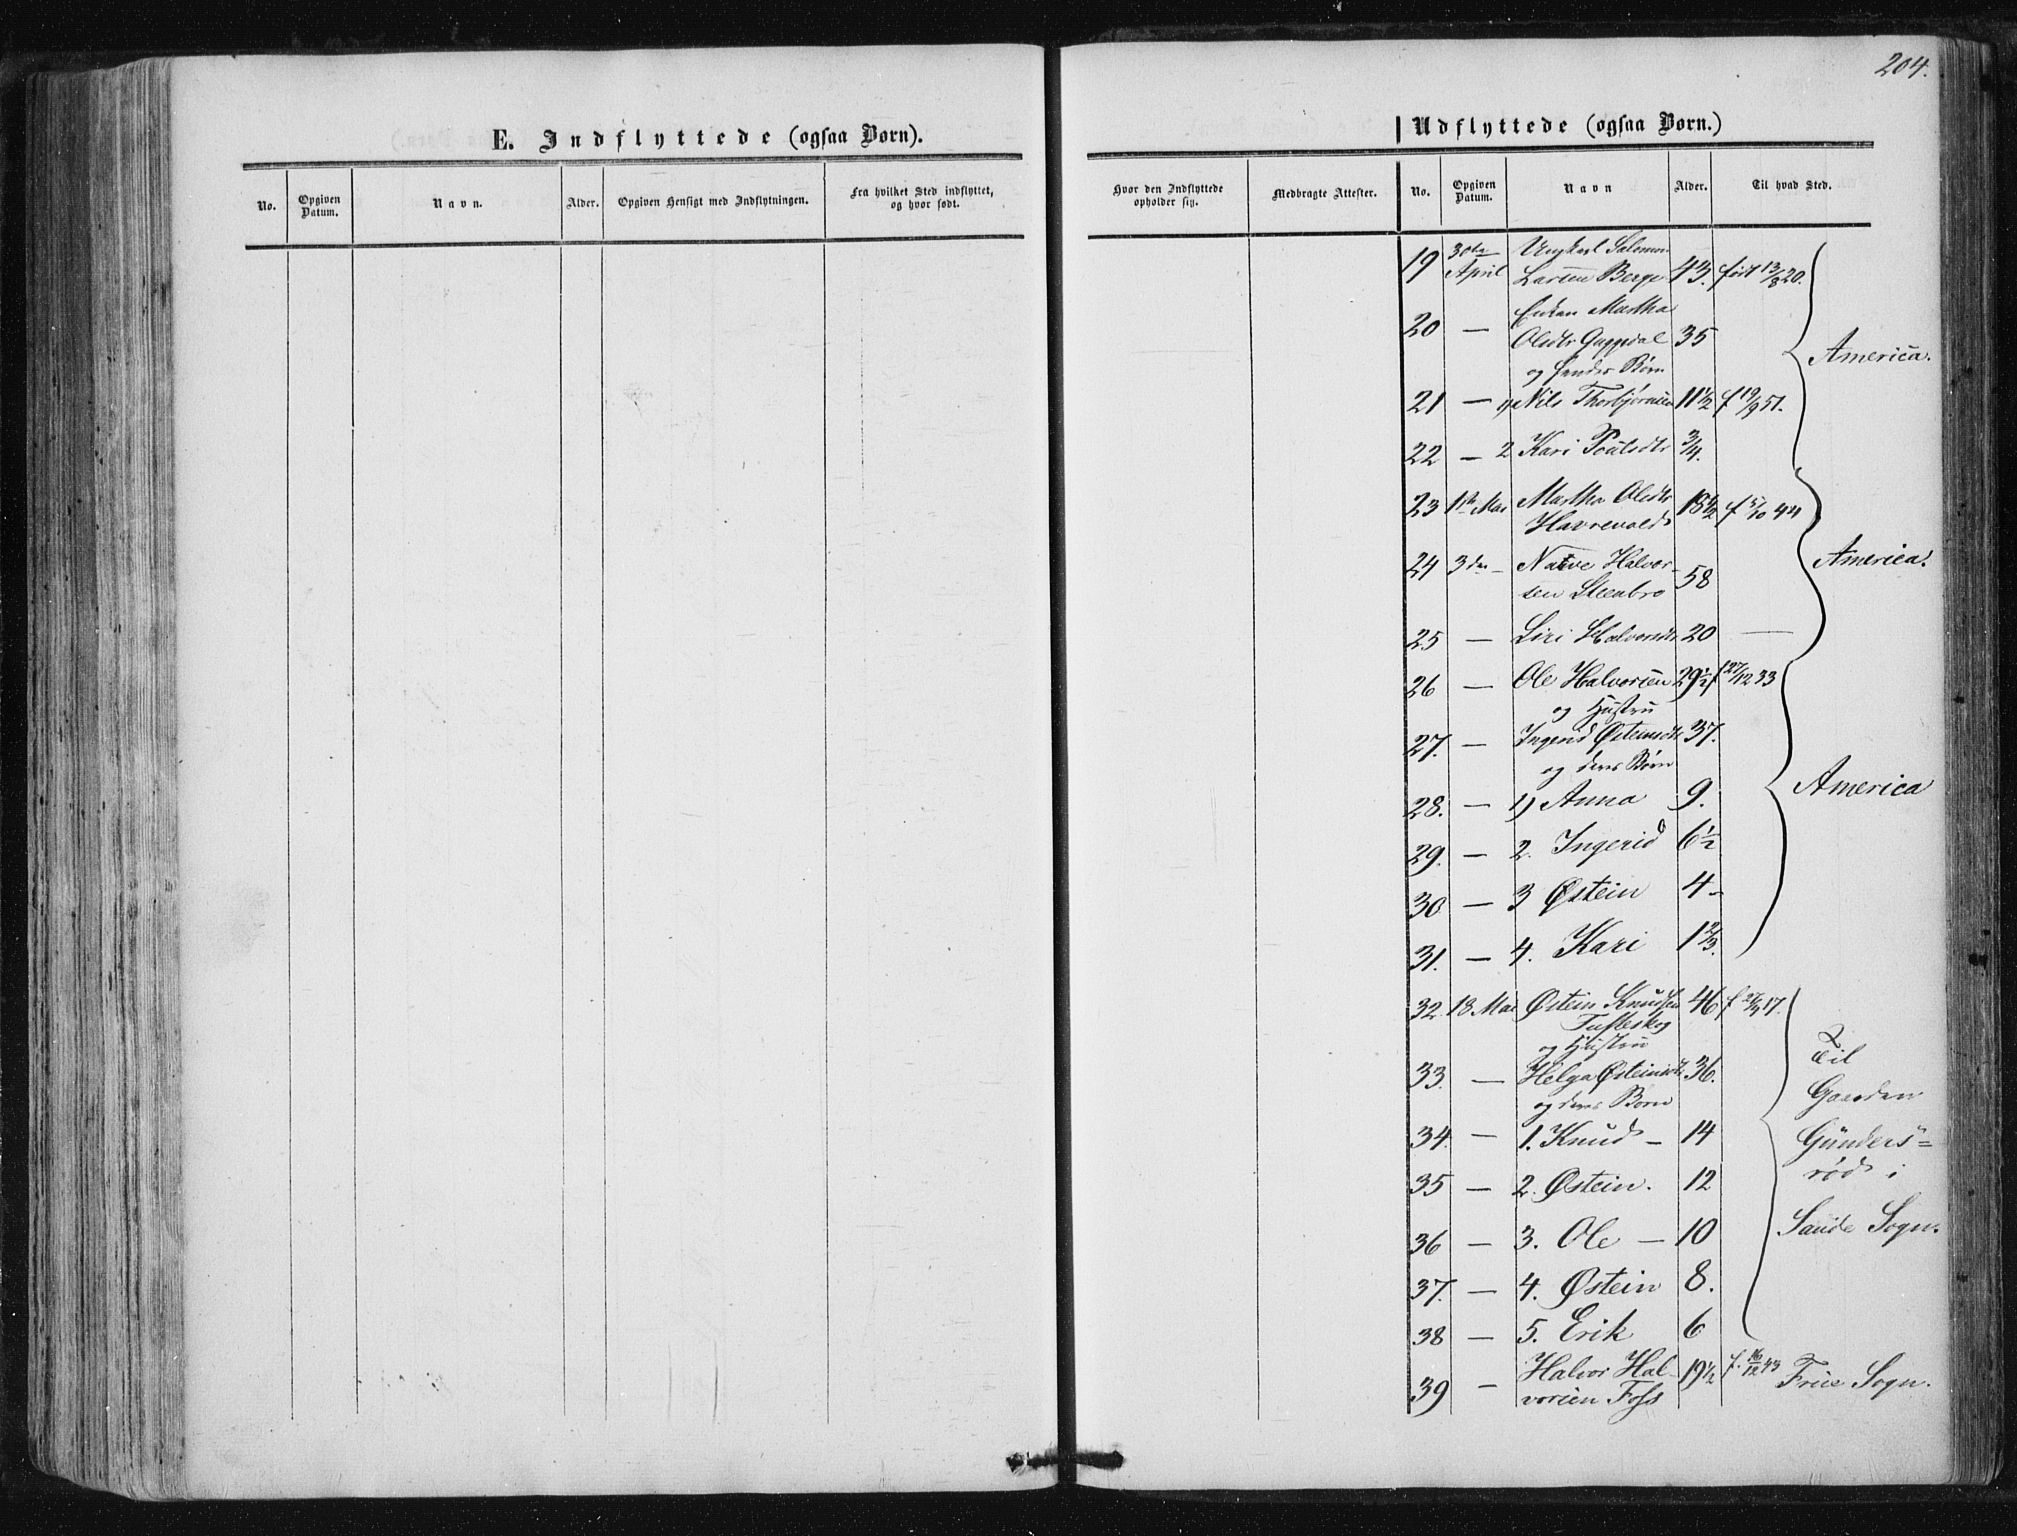 204.
E. Indflyttede (ogsaa Børn).
Udflyttede (ogsaa Børn.)
No. Opgiven Datum. Navn. Alder. Opgiven Hensigt med Indflytningen. Fra hvilket Sted indflyttet, og hvor født.
Hvor den Indflyttede opholder sig. Medbragte Attester. No. Opgiven Datum. Navn Alder. Til hvad Sted.
19 30te April Ungkarl Salomon
Larsen Berge 43. født 13/8 20.
20 — Enken Martha
Olsdtr 35
og hendes Børn
America.
21 — 1) Nils Thorbjørnsen 11 1/2 f 19/9 51.
22 — 2 Kari Poulsdtr 3/4.
23 1ste Mai Martha Olsdtr
Havrevold 18 1/2 f 5/10 44
24 3die — Narve Halvor-
sen Steenbro 58
America.
25 — Siri Halvorsdtr 20 —
26 — Ole Halvorsen 29 1/2 f 27/12 33
og Hustru
27. — Ingerid Østeinsdtr 37.
og deres Børn
28. — 1) Anna 9.
America
29. — 2. Ingerid 6 1/2
30 — 3 Østein 4 -
31. — 4. Kari 1 2/3.
32. 18 Mai Østein Knudsen 46 f 27/3 17.
Tufteskog
og Hustru
33. — Helga Østeinsdtr 36.
og deres Børn
34. — 1. Knud — 14
35 — 2. Østein. 12
36 — 3. Ole — 10
37. — 4. Østein 8.
38 — 5. Erik 6
Til
Gaarden
Gunders=
rød i
Sande Sogn.
39 — Halvor Hal-
vorsen Foss 19 1/2 f. 16/12 43 Frue Sogn.